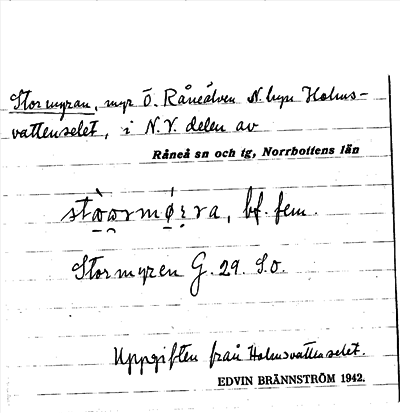 Stormyran, myr Ö. Råneälven N. byn Holms-
vattenselet, i N.V. delen av
Råneå sn och tg, Norrbottens län
bf. fem.
Stormyren G. 29. S.o.
Uppgiften från Holmsvattenselet.
EDVIN BRÄNNSTRÖM 1942.